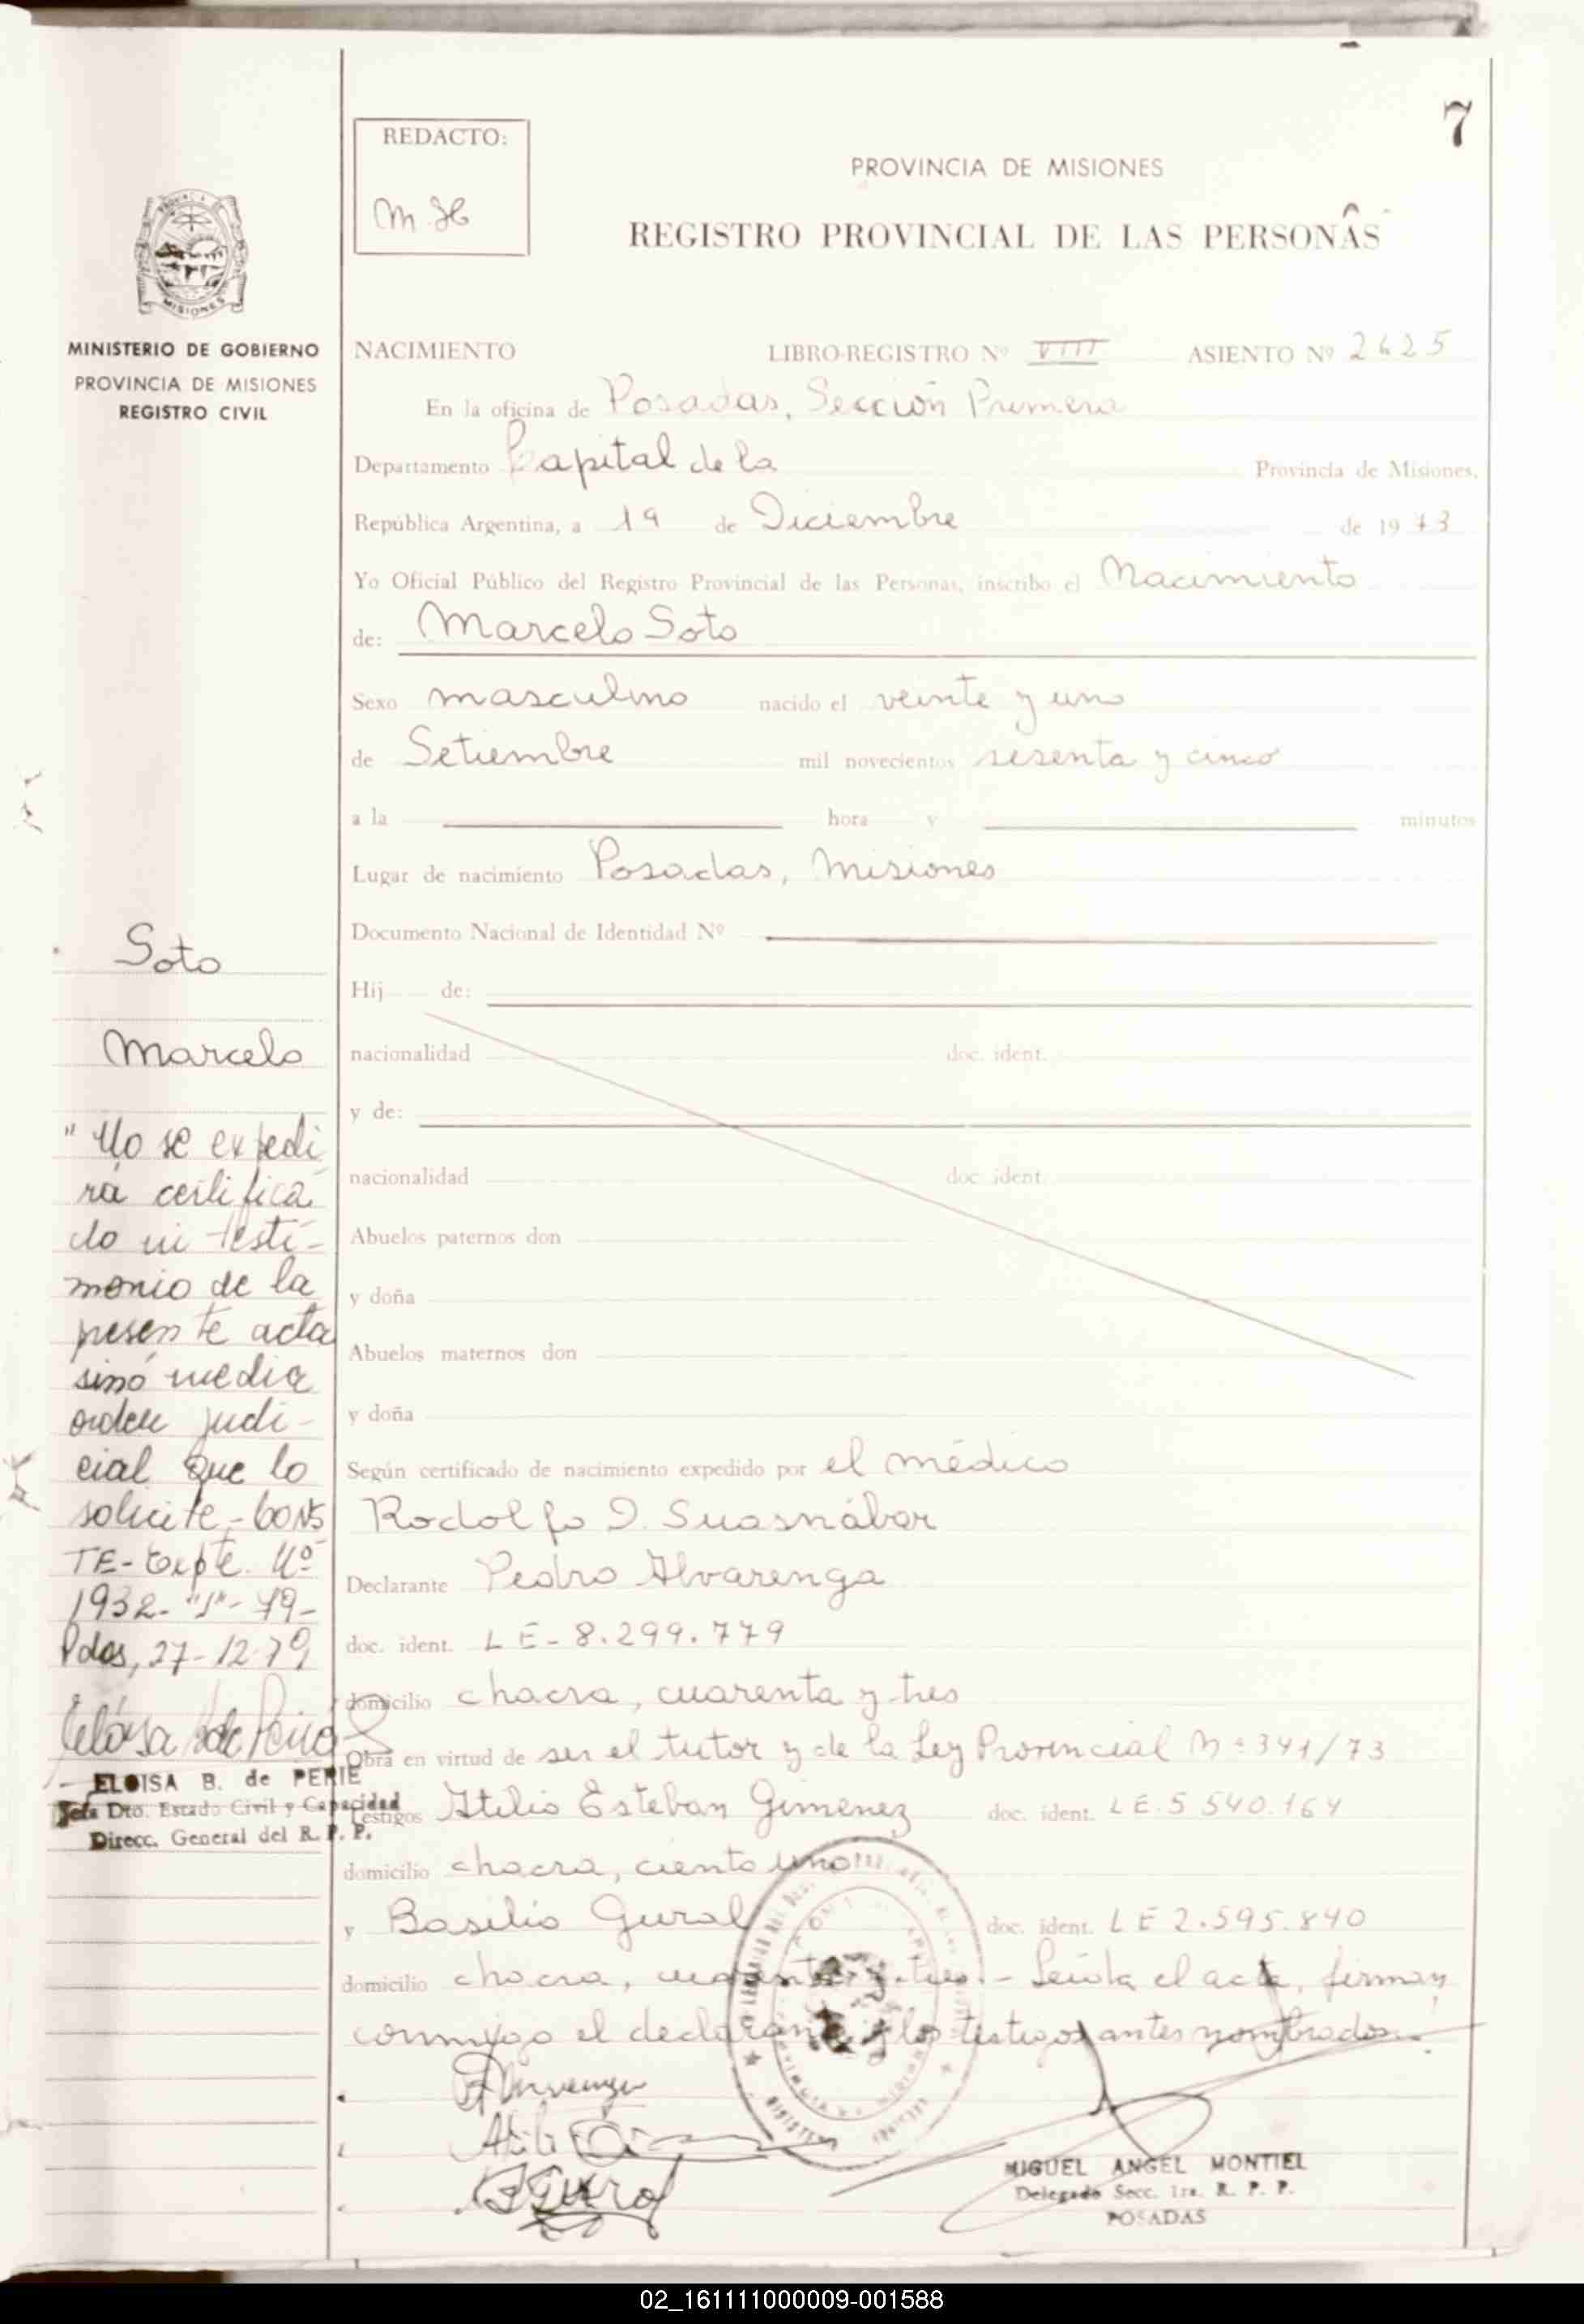 7
REDACTO:
M. H
PROVINCIA DE MISIONES
REGISTRO PROVINCIAL DE LAS PERSONAS
MISIONES
MINISTERIO DE GOBIERNO
PROVINCIA DE MISIONES
REGISTRO CIVIL
NACIMIENTO LIBRO-REGISTRO Nº VIII ASIENTO Nº 2625
En la oficina de Posadas, Sección Primera
Departamento Capital de la Provincia de Misiones,
República Argentina, a 19 de Diciembre de 1973
Yo Oficial Público del Registro Provincial de las Personas, inscribo el Nacimiento
de: Marcelo Soto
Sexo masculino nacido el veinte y uno
de Setiembre mil novecientos sesenta y cinco
a la hora y minutos
Lugar de nacimiento Posadas, Misiones
Documento Nacional de Identidad Nº
Hij de:
nacionalidad doc. ident.
y de:
nacionalidad doc. ident.
Abuelos paternos don
y doña
Abuelos maternos don
y doña
Según certificado de nacimiento expedido por el médico
Rodolfo D. Suasnábar
Declarante Pedro Alvarenga
doc. ident. LE-8.299.779
domicilio chacra, cuarenta y tres
Obra en virtud de ser el tutor y de la Ley Provincial Nº 341/73
Testigos Atilio Esteban Gimenez doc. ident. LE.5 540.164
domicilio chacra, ciento uno
y Basilio Gural doc. ident. LE 2.595.840
domicilio chacra, cuarenta y tres.- Leída el acta, firman
conmigo el declarante y los testigos antes nombrados.
MIGUEL ANGEL MONTIEL
Delegado Secc. 1ra. R. P. P.
POSADAS
Soto
Marcelo
"No se expedi
rá certifica
do ni testi-
monio de la
presente acta
sinó media
orden judi-
cial que lo
solicite.-CONS
TE-Expte. Nº
1932-"S"-79-
Pdas, 27-12-79
ELOISA B. de PERIE
Jefa Dto. Estado Civil y Capacidad
Direcc. General del R. P. P.
02_161111000009-001588